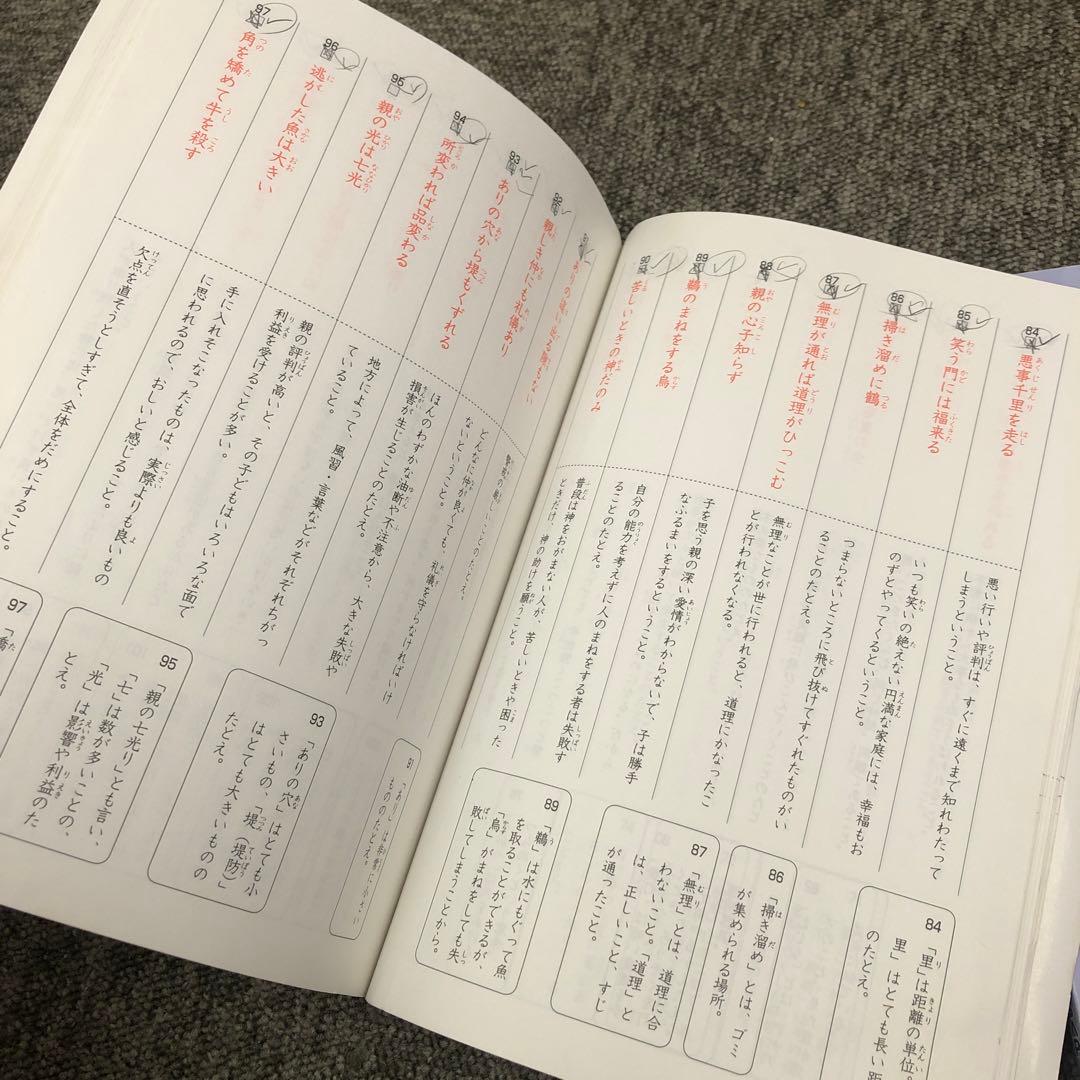 84
悪事千里を走る
悪い行いや評判は、すぐに遠くまで知れわたって
しまうということ。
85
笑う門には福来る
いつも笑いの絶えない円満な家庭には、幸福もお
のずとやってくるということ。
86
掃き溜めに鶴
つまらないところに飛び抜けてすぐれたものがい
ることのたとえ。
87
無理が通れば道理がひっこむ
無理なことが世に行われると、道理にかなったこ
とが行われなくなる。
88
親の心子知らず
子を思う親の深い愛情がわからないで、子は勝手
なふるまいをするということ。
89
鵜のまねをする烏
自分の能力を考えずに人のまねをする者は失敗す
ることのたとえ。
90
苦しいときの神だのみ
普段は神をおがまない人が、苦しいときや困った
ときだけ、神の助けを願うこと。
84
「里」は距離の単位。
里」はとても長い距
のたとえ。
86
「掃き溜め」とは、ゴミ
が集められる場所。
87
「無理」とは、道理に合
わないこと。「道理」と
は、正しいこと、すじ
が通ったこと。
89
「鵜」は水にもぐって魚
を取ることができるが、
「烏」がまねをしても失
敗してしまうことから。
91
ありの這い出る隙もない
警戒の厳しいことのたとえ。
92
親しき仲にも礼儀あり
どんなに仲が良くても、礼儀を守らなければいけ
ないということ。
93
ありの穴から堤もくずれる
ほんのわずかな油断や不注意から、大きな失敗や
損害が生じることのたとえ。
94
所変われば品変わる
地方によって、風習・言葉などがそれぞれちがっ
ていること。
95
親の光は七光
親の評判が高いと、その子どもはいろいろな面で
利益を受けることが多い。
96
逃がした魚は大きい
手に入れそこなったものは、実際よりも良いもの
に思われるので、おしいと感じること。
97
角を矯めて牛を殺す
欠点を直そうとしすぎて、全体をだめにすること。
91
「あり」は非常に小さい
もののたとえ。
93
「ありの穴」はとても小
さいもの、「堤(堤防)」
はとても大きいものの
たとえ。
95
「親の七光り」とも言い、
「七」は数が多いことの、
「光」は影響や利益のた
とえ。
97